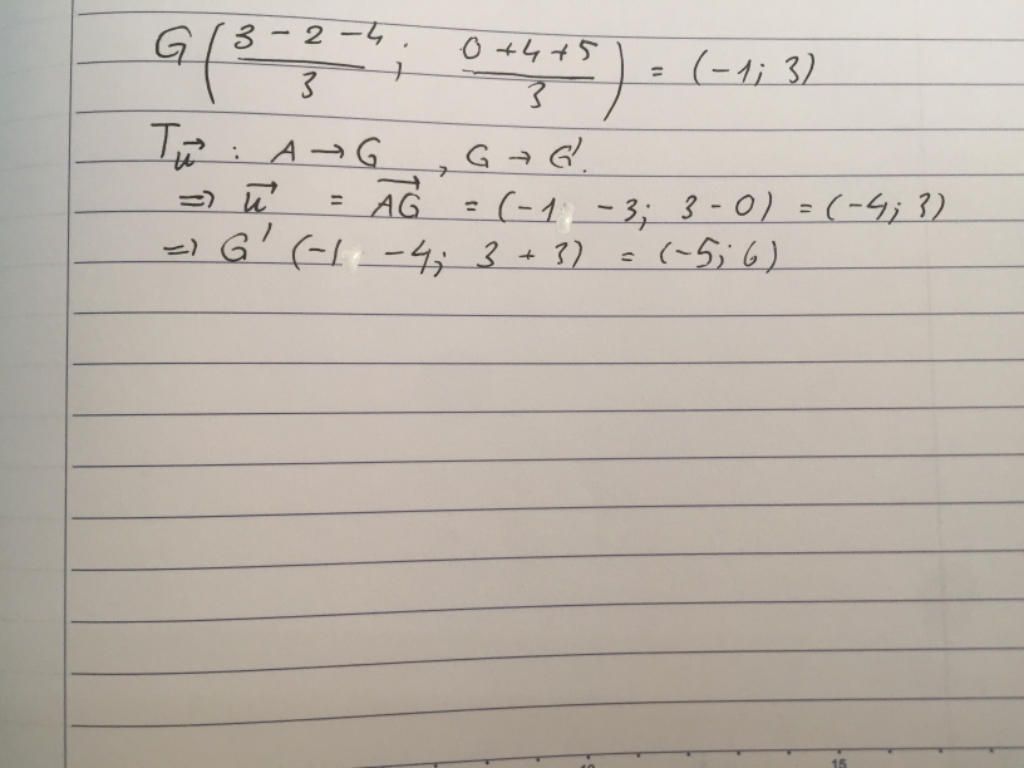 G(\frac{3-2-4}{3}; \frac{0+4+5}{3}) = (-1; 3)
T_{\vec{u}} : A → G , G → G'.
⇒ \vec{u} = \overrightarrow{AG} = (-1 -3; 3-0) = (-4; 3)
⇒ G' (-1 -4; 3+3) = (-5; 6)
15